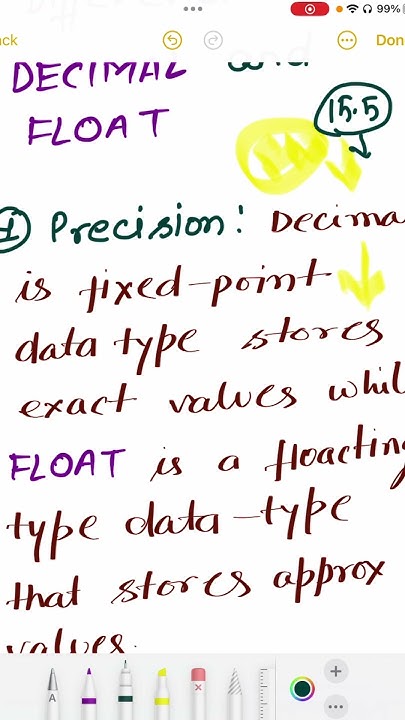 99%
ck
Don
DECIMAL and
FLOAT
15.5
① Precision: Decima
is fixed-point
data type stores
exact values whil
FLOAT is a floacting
type data-type
that stores approx
values.
A